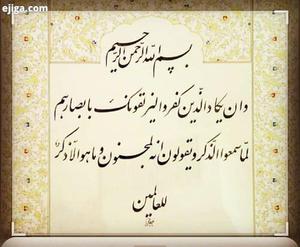 ejiga.com
بسم الله الرحمن الرحيم
وان يكاد الذين كفروا ليزلقونك بابصارهم
لما سمعوا الذكر و يقولون انه لمجنون و ما هو الا ذكر
للعالمين